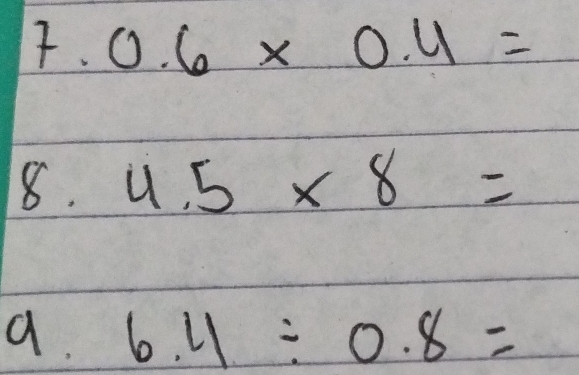 7. 0.6 × 0.4 =
8. 4.5 × 8 =
9. 6.4 ÷ 0.8 =